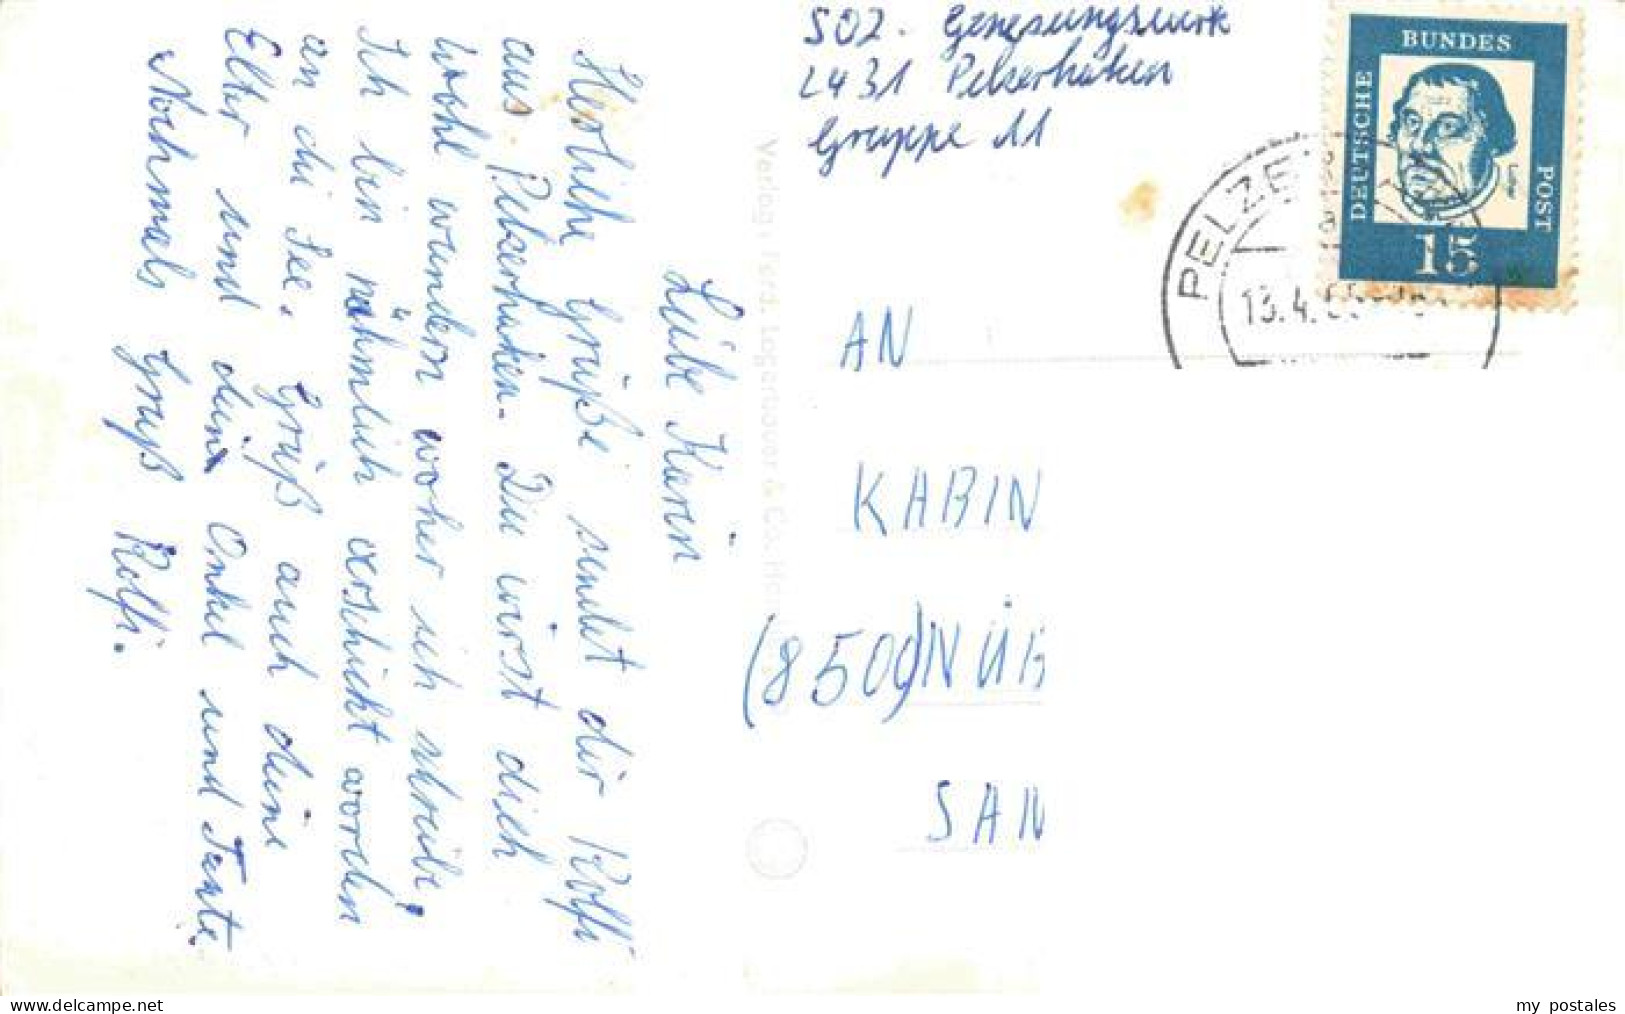 Liebe Karin
Herzliche Grüße sendet dir Rolfi
aus Pelzerhaken. Du wirst dich
wohl wundern woher ich schreibe,
Ich bin nähmlich verschickt worden
an die See. Grüß auch deine
Elter und dein Onkel und Tante.
Nochmals Gruß Rolfi.
Verlag: Ferd. Lagerbauer & Co.
502. Genesungswerk
2431 Pelzerhaken
Gruppe 11
DEUTSCHE
BUNDES
POST
15
PELZE
13.4.
AN
KARIN
(8500) NÜR
SAN
www.delcampe.net
my postales